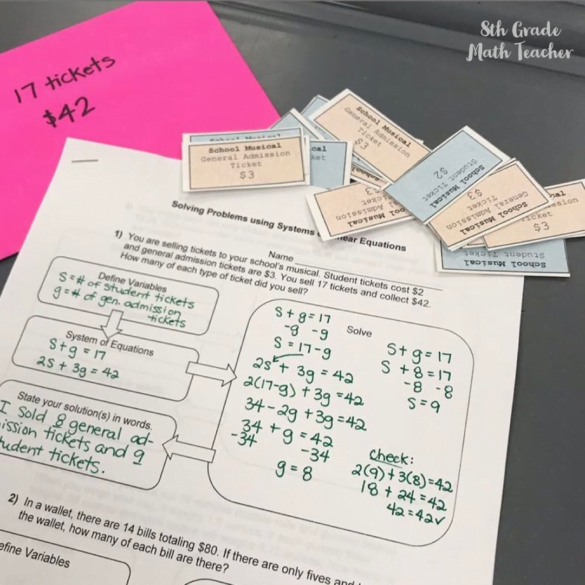 8th Grade
Math Teacher
17 tickets
$42
School Musical
General Admission
Ticket
$3
School Musical
General Admission
Ticket
$3
School Musical
Student Ticket
$2
School Musical
General Admission
Ticket
$3
Solving Problems using Systems Linear Equations
Name
1) You are selling tickets to your school's musical. Student tickets cost $2
and general admission tickets are $3. You sell 17 tickets and collect $42.
How many of each type of ticket did you sell?
Define Variables
S = # of student tickets
g = # of gen. admission
tickets
System of Equations
S + g = 17
2S + 3g = 42
State your solution(s) in words.
I sold 8 general ad-
mission tickets and 9
student tickets.
Solve
S + g = 17
-g -g
S = 17 - g
2S + 3g = 42
2(17-g) + 3g = 42
34 - 2g + 3g = 42
34 + g = 42
-34 -34
g = 8
S + g = 17
S + 8 = 17
-8 -8
S = 9
Check:
2(9) + 3(8) = 42
18 + 24 = 42
42 = 42 ✓
2) In a wallet, there are 14 bills totaling $80. If there are only fives and
the wallet, how many of each bill are there?
efine Variables